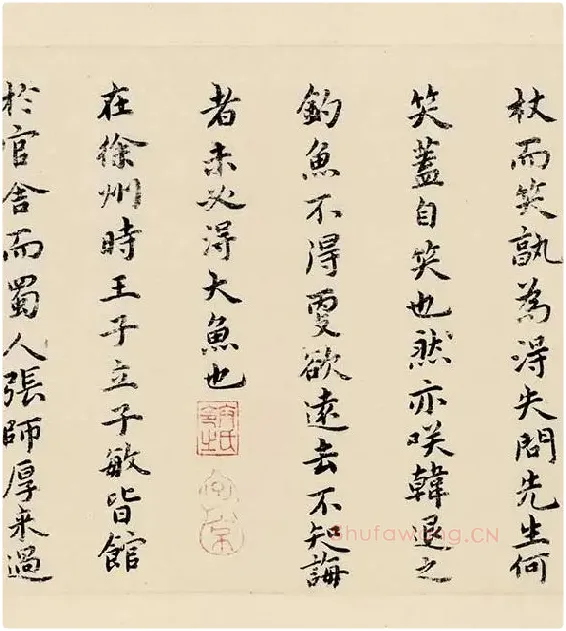 杖而笑孰為得失問先生何
笑蓋自笑也然亦咲韓退之
釣魚不得更欲遠去不知海
者未必得大魚也
在徐州時王子立子敏皆館
於官舍而蜀人張師厚来過
shufawang.CN